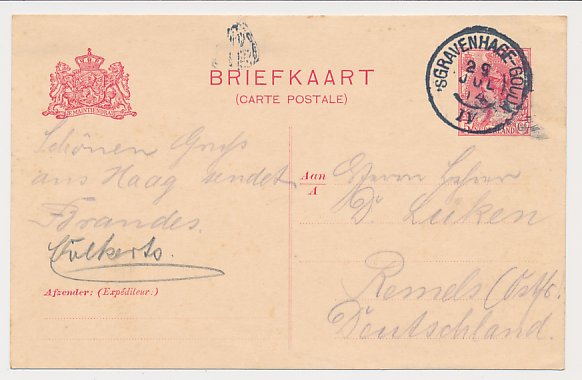 BRIEFKAART
(CARTE POSTALE)
'SGRAVENHAGE-GOUDA
29
JUL
14
IV
JE MAINTIENDRAI
Schönen Gruß
aus Haag sendet
Brandes.
Volkerts.
Afzender: (Expéditeur.)
Aan
A
Herrn Lehrer
D. Lüken
Remels (Ostfr.
Deutschland.